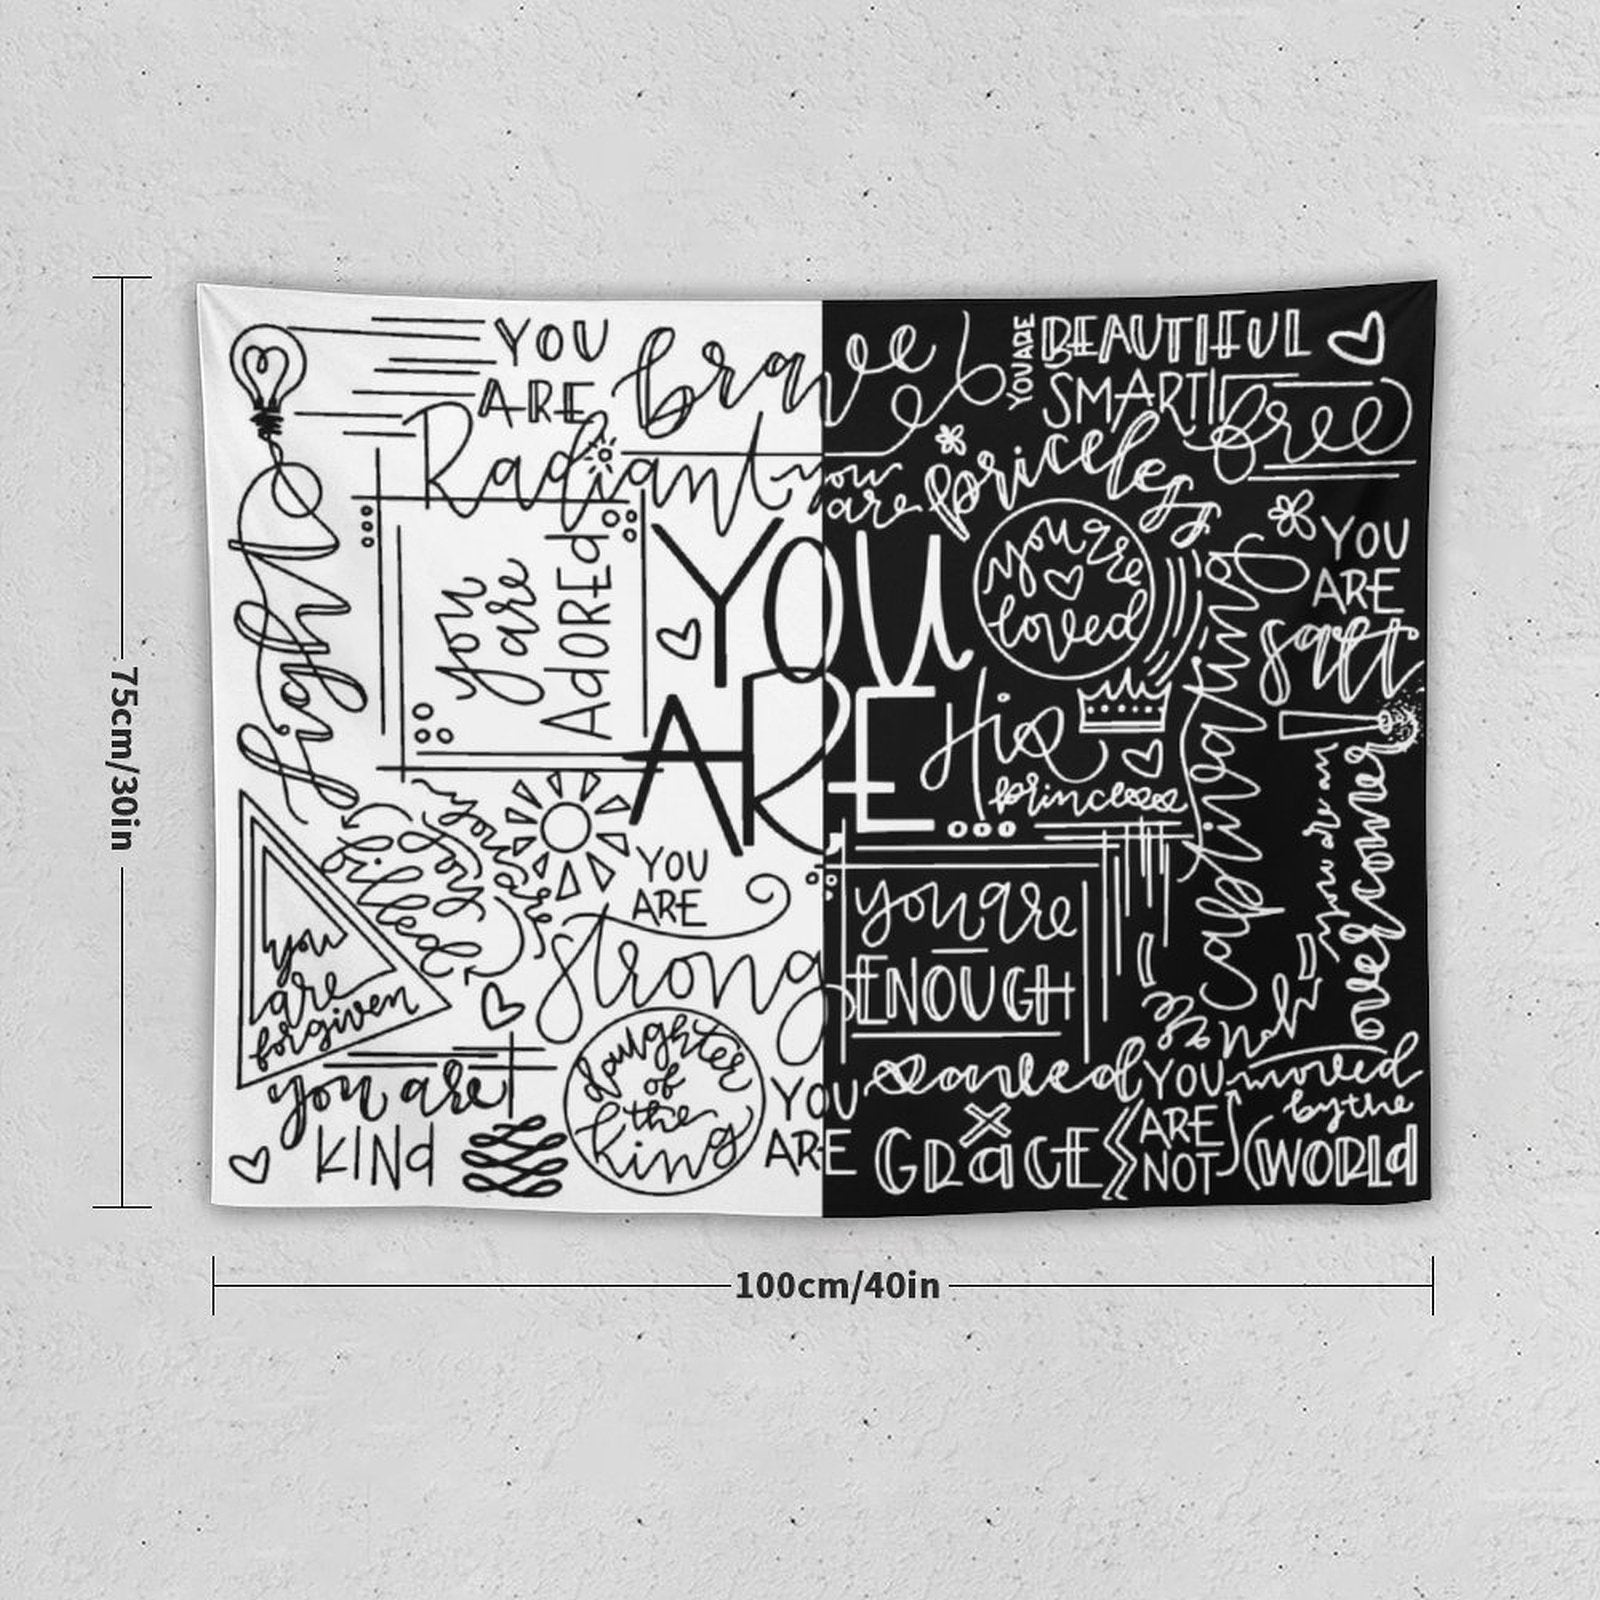 YOU
ARE
brave
YOU ARE
BEAUTIFUL
SMART
free
Radiant
you
are
priceless
light
you
are
ADOREd
YOU
ARE
you are
loved
YOU
ARE
salt
captivating
His
princess
you are an
overcomer
you are
filled
joy
YOU
ARE
strong
you are
ENOUGH
you
are
forgiven
you are
KINd
daughter
of
the
king
YOU
ARE
covered
x
GRaCE
YOU
ARE
NOT
moved
by the
WORLd
75cm/30in
100cm/40in